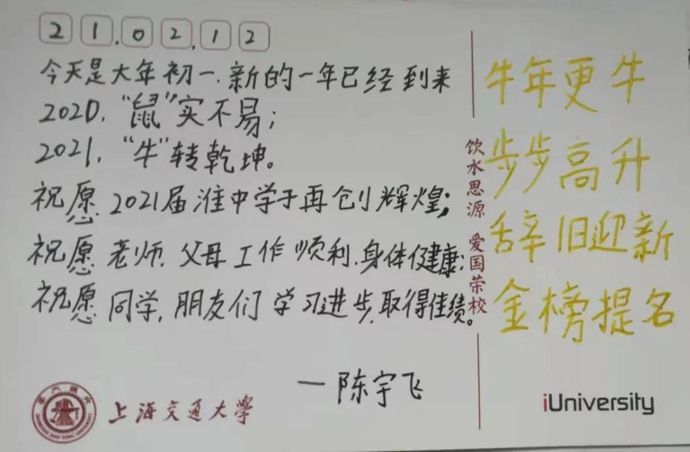 21.02.12
今天是大年初一.新的一年已经到来
2020."鼠"实不易;
2021."牛"转乾坤。
祝愿2021届淮中学子再创辉煌;
祝愿老师.父母工作顺利.身体健康;
祝愿同学,朋友们学习进步.取得佳绩。
—陈宇飞
上海交通大学
饮水思源 爱国荣校
牛年更牛
步步高升
辞旧迎新
金榜提名
iUniversity